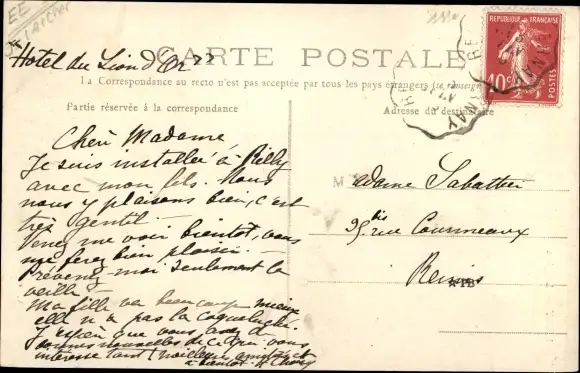 Hotel du Lion d'Or
CARTE POSTALE
La Correspondance au recto n'est pas acceptée par tous les pays étrangers (se renseigner
Partie réservée à la correspondance
Adresse du destinataire
REPUBLIQUE FRANÇAISE
40c
POSTES
Chère Madame
Je suis installée à Rilly
avec mon fils. Nous
nous y plaisons bien, c'est
très gentil.
Venez me voir bientôt, vous
me ferez bien plaisir. —
Prévenez-moi seulement la
veille —
Ma fille va beaucoup mieux
elle n'a pas la coqueluche.
J'espère que vous avez de
bonnes nouvelles de
intéresse tant
à bientôt.
Madame Sabatier
35 bis rue Courmeaux
Reims